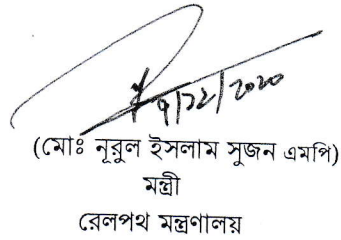 ৭/১২/২০২০
(মোঃ নূরুল ইসলাম সুজন এমপি)
মন্ত্রী
রেলপথ মন্ত্রণালয়